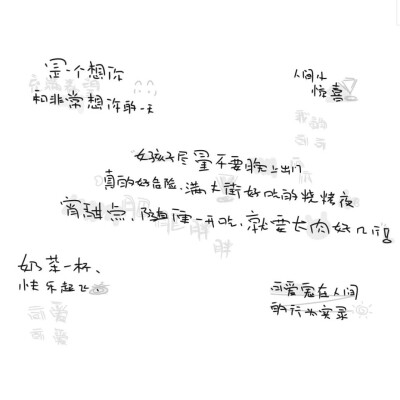 是一个想你
和非常想你的一天
人间小
惊喜
女孩子尽量不要晚上出门
真的好危险,满大街好吃的烧烤夜
宵甜点,随便一开吃,就要长肉好几斤
奶茶一杯、
快乐起飞、
可爱鬼在人间
的行为实录
可爱
可爱